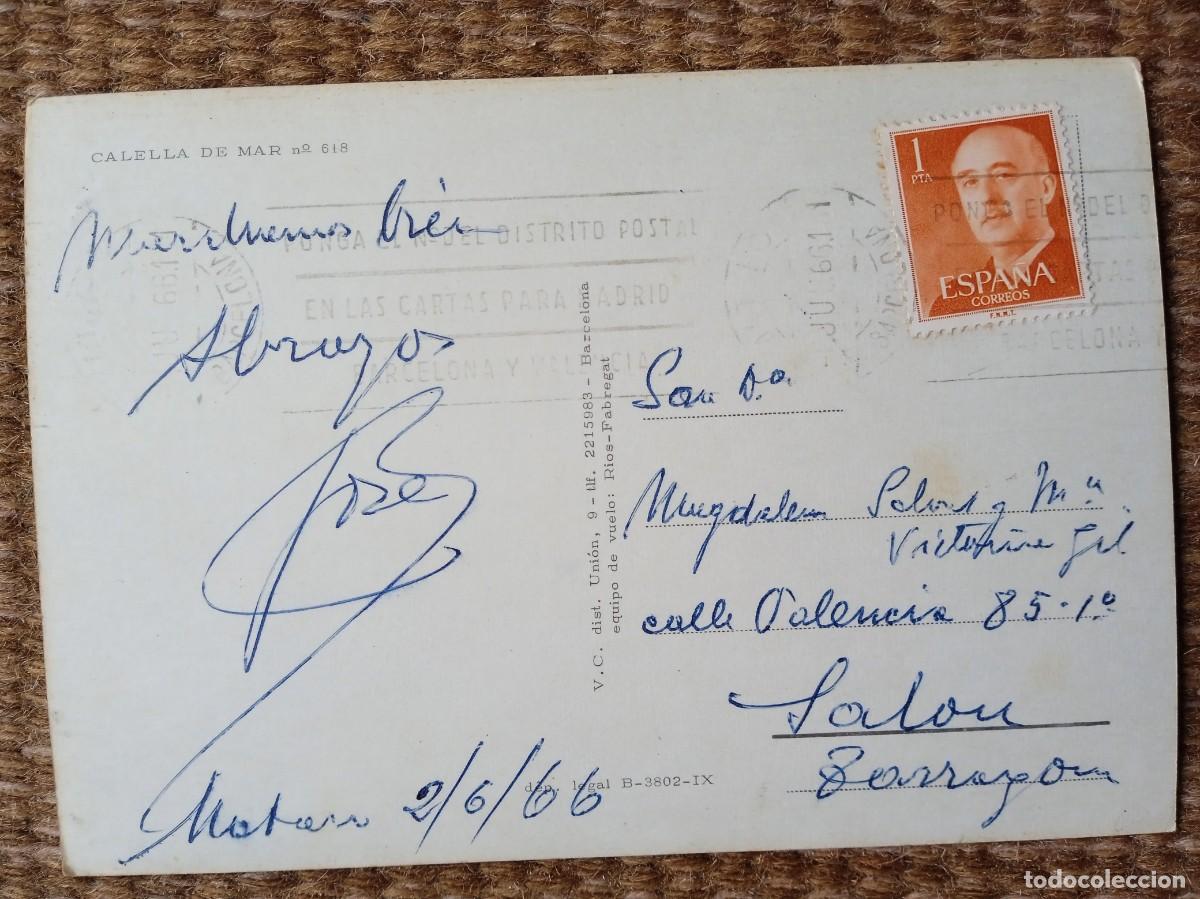 CALELLA DE MAR nº 618
Marchemos bién
Abrazos
José
Mataro 2/6/66
dép. legal B-3802-IX
V.C. dist. Unión, 9 - tlf. 2215983 - Barcelona
equipo de vuelo: Rios-Fabregat
PONGA EL Nº DEL DISTRITO POSTAL
EN LAS CARTAS PARA MADRID
BARCELONA Y VALENCIA
1
PTA
ESPAÑA
CORREOS
F.N.M.T.
PONGA EL Nº DEL D
CELONA
Magdalena y Mª
Victoria Gil
calle Valencia 85-1º
Salou
Tarragona
todocoleccion